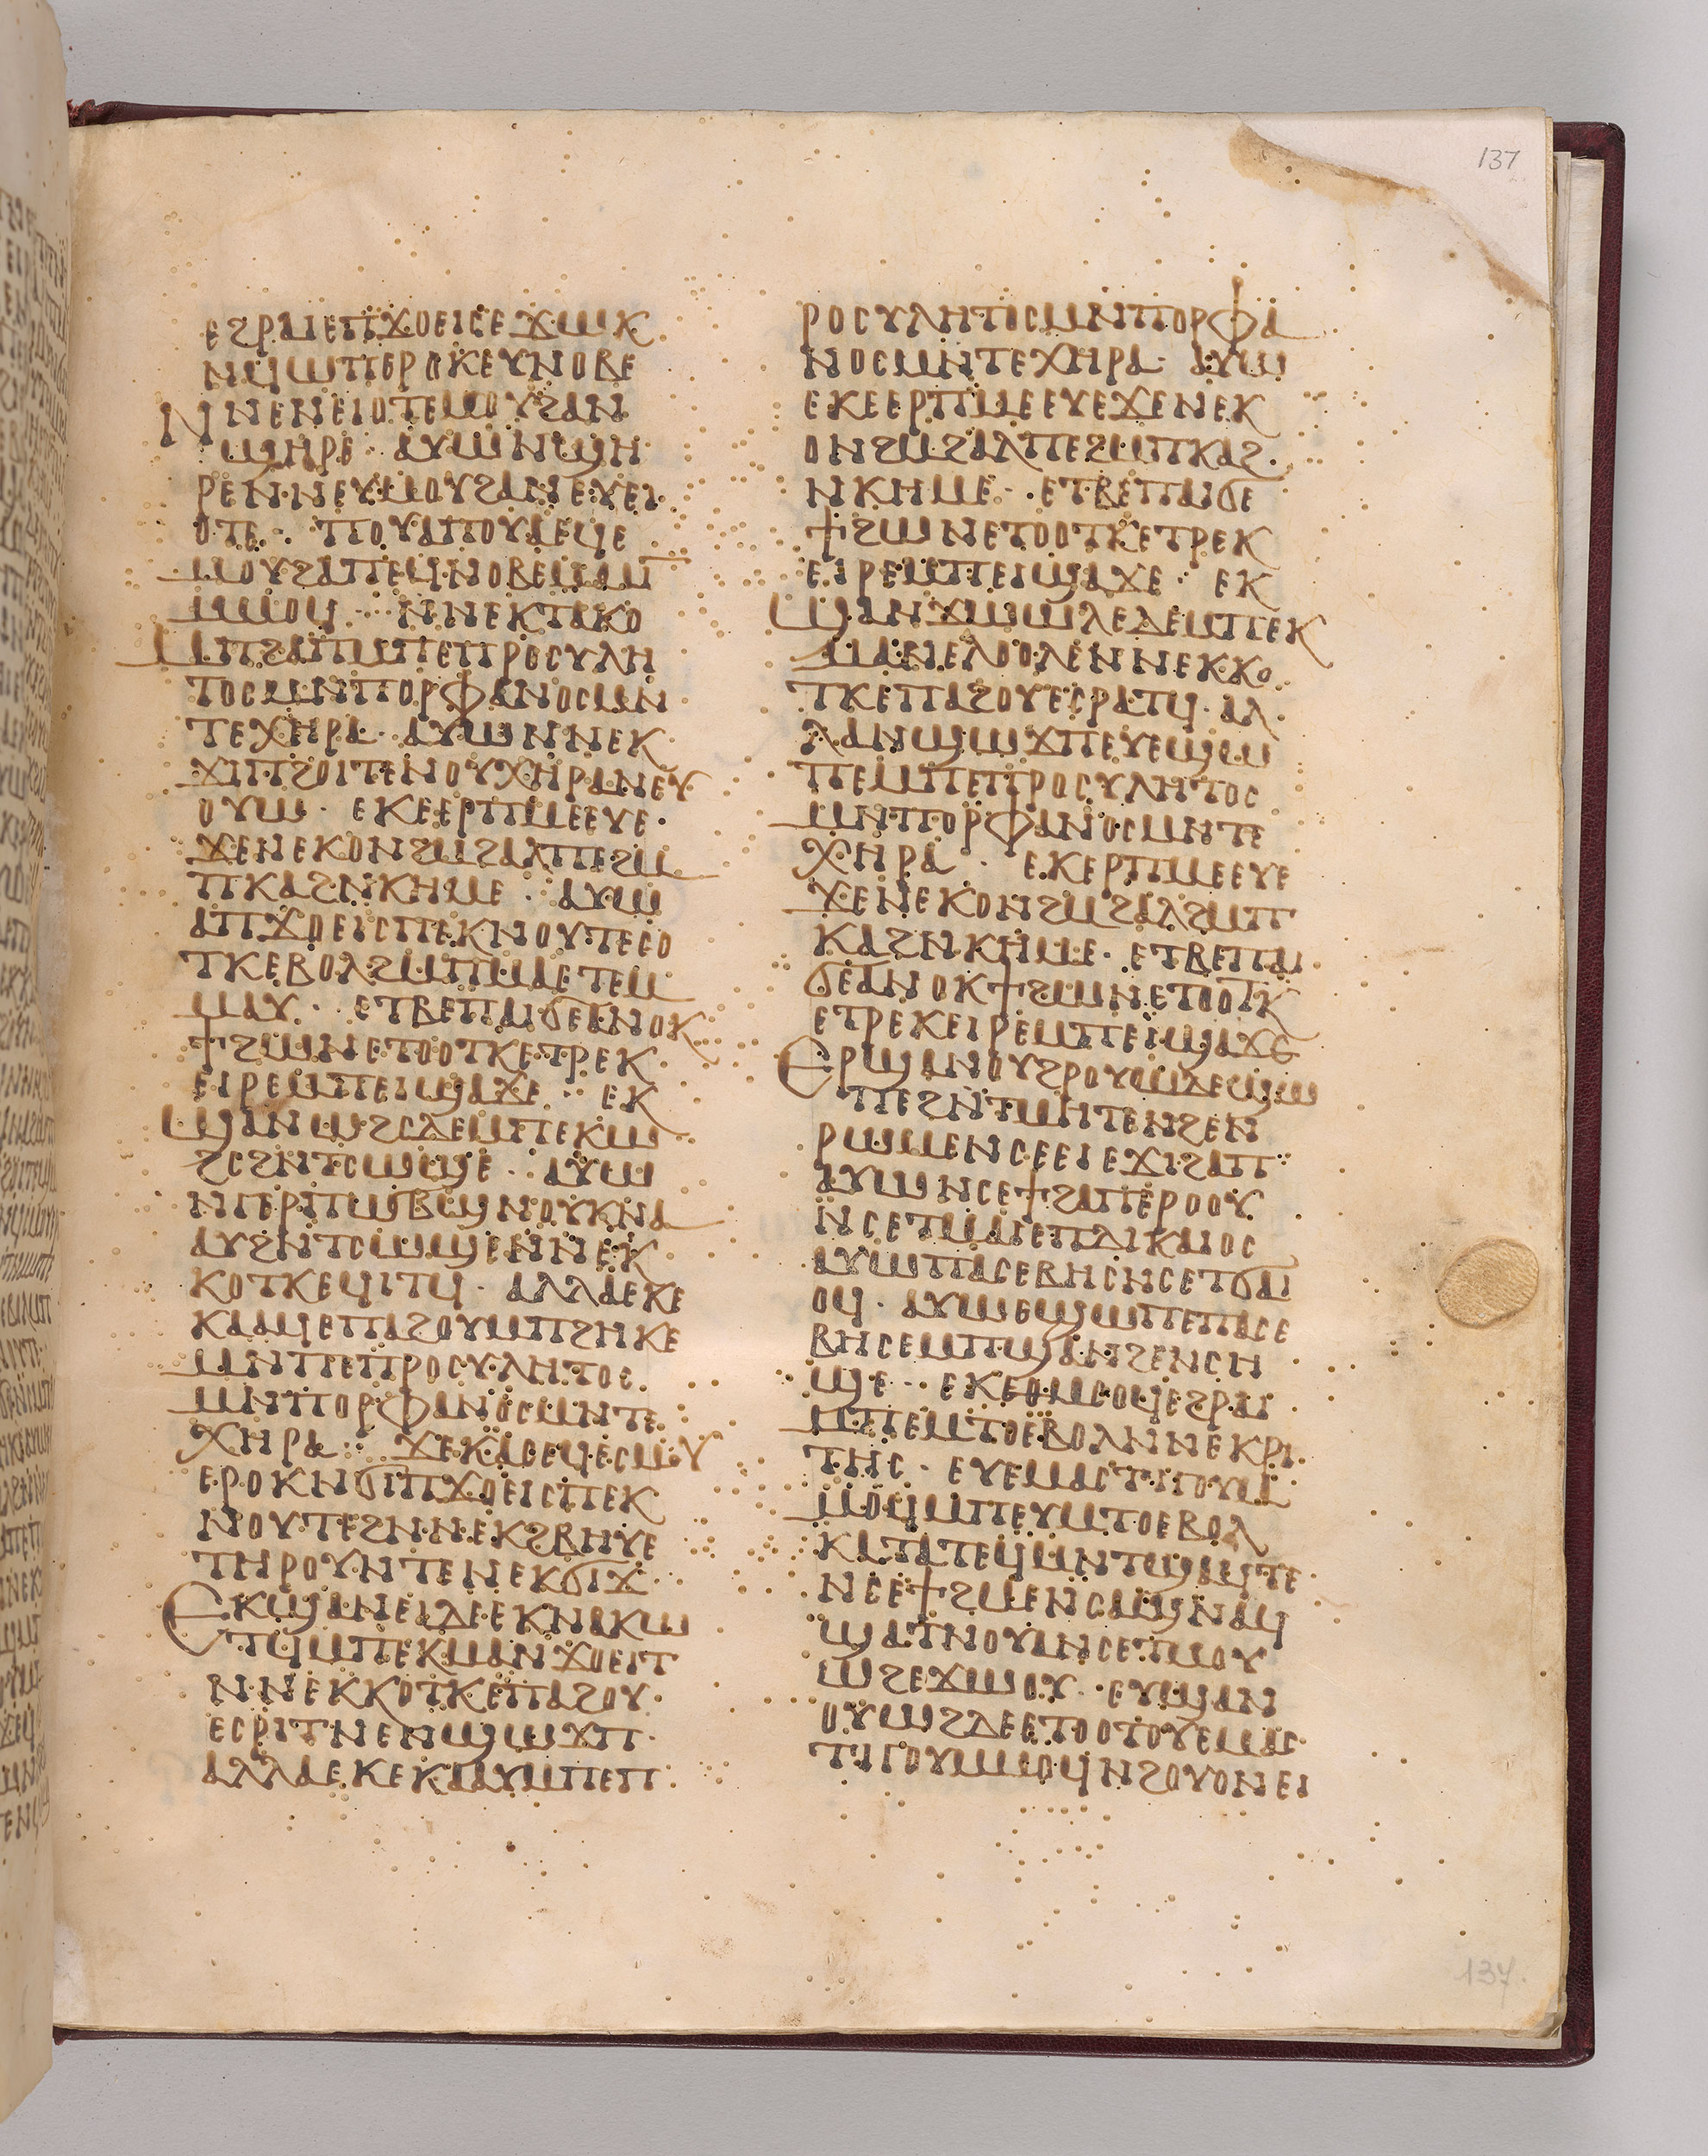 ⲉϩⲣⲁⲓⲉⲡϫⲟⲉⲓⲥⲉϫⲱⲕ
ⲛϥⲱⲡⲉⲣⲟⲕⲉⲩⲛⲟⲃⲉ
ⲛⲛⲉⲛⲉⲓⲟⲧⲉⲙⲟⲩϩⲁⲛ
ϣⲏⲣⲉ· ⲁⲩⲱⲛϣⲏ
ⲣⲉⲛⲛⲉⲩⲙⲟⲩϩⲁⲛⲉⲩⲉⲓ
ⲟⲧⲉ· ⲡⲟⲩⲁⲡⲟⲩⲁⲉϥⲉ
ⲙⲟⲩϩⲁⲡⲉϥⲛⲟⲃⲉⲙⲙⲓⲛ
ⲙⲙⲟϥ· ⲛⲛⲉⲕⲧⲁⲕⲟ
ⲙⲡϩⲁⲡⲙⲡⲉⲡⲣⲟⲥⲩⲗⲏ
ⲧⲟⲥⲙⲛⲡⲟⲣⲫⲁⲛⲟⲥⲙⲛ
ⲧⲉⲭⲏⲣⲁ· ⲁⲩⲱⲛⲛⲉⲕ
ϫⲓⲡϩⲟⲓⲧⲉⲛⲟⲩⲭⲏⲣⲁⲛⲉⲩ
ⲟⲩⲱ· ⲉⲕⲉⲉⲣⲡⲙⲉⲉⲩⲉ·
ϫⲉⲛⲉⲕⲟⲛϩⲙϩⲁⲗⲡⲉϩⲙ
ⲡⲕⲁϩⲛⲕⲏⲙⲉ· ⲁⲩⲱ
ⲁⲡϫⲟⲉⲓⲥⲡⲉⲕⲛⲟⲩⲧⲉⲥⲟ
ⲧⲕⲉⲃⲟⲗϩⲙⲡⲙⲁⲉⲧⲉⲙ
ⲙⲁⲩ· ⲉⲧⲃⲉⲡⲁⲓϭⲉⲁⲛⲟⲕ
ϯϩⲱⲛⲉⲧⲟⲟⲧⲕⲉⲧⲣⲉⲕ
ⲉⲓⲣⲉⲙⲡⲉⲓϣⲁϫⲉ· ⲉⲕ
ϣⲁⲛⲱϩⲥⲇⲉⲙⲡⲉⲕⲱ
ϩⲥϩⲛⲧⲥⲱϣⲉ· ⲁⲩⲱ
ⲛⲅⲉⲣⲡⲱⲃϣⲛⲟⲩⲕⲛⲁ
ⲁⲩϩⲛⲧⲥⲱϣⲉⲛⲛⲉⲕ
ⲕⲟⲧⲕⲉϥⲓⲧϥ· ⲁⲗⲗⲁⲉⲕⲉ
ⲕⲁⲁϥⲉⲡⲁϩⲟⲩⲙⲡϩⲏⲕⲉ
ⲙⲛⲡⲉⲡⲣⲟⲥⲩⲗⲏⲧⲟⲥ
ⲙⲛⲡⲟⲣⲫⲁⲛⲟⲥⲙⲛⲧⲉ
ⲭⲏⲣⲁ· ϫⲉⲕⲁⲥⲉϥⲉⲥⲙⲟⲩ
ⲉⲣⲟⲕⲛϭⲓⲡϫⲟⲉⲓⲥⲡⲉⲕ
ⲛⲟⲩⲧⲉϩⲛⲛⲉⲕϩⲃⲏⲩⲉ
ⲧⲏⲣⲟⲩⲛⲧⲉⲛⲉⲕϭⲓϫ
ⲉⲕϣⲁⲛⲉⲓⲇⲉⲉⲕⲛⲁⲕⲱ
ⲧϥⲙⲡⲉⲕⲙⲁⲛϫⲟⲉⲓⲧ
ⲛⲛⲉⲕⲕⲟⲧⲕⲉⲡⲁϩⲟⲩ·
ⲉⲥⲣⲓⲧⲛⲉⲛϣⲱϫⲡ·
ⲁⲗⲗⲁⲉⲕⲉⲕⲁⲁⲩⲙⲡⲉⲡ
ⲣⲟⲥⲩⲗⲏⲧⲟⲥⲙⲛⲡⲟⲣⲫⲁ
ⲛⲟⲥⲙⲛⲧⲉⲭⲏⲣⲁ· ⲁⲩⲱ
ⲉⲕⲉⲉⲣⲡⲙⲉⲉⲩⲉϫⲉⲛⲉⲕ
ⲟⲛϩⲙϩⲁⲗⲡⲉϩⲙⲡⲕⲁϩ
ⲛⲕⲏⲙⲉ· ⲉⲧⲃⲉⲡⲁⲓϭⲉ
ϯϩⲱⲛⲉⲧⲟⲟⲧⲕⲉⲧⲣⲉⲕ
ⲉⲓⲣⲉⲙⲡⲉⲓϣⲁϫⲉ· ⲉⲕ
ϣⲁⲛϫⲱⲱⲗⲉⲇⲉⲙⲡⲉⲕ
ⲙⲁⲛⲉⲗⲟⲟⲗⲉⲛⲛⲉⲕⲕⲟ
ⲧⲕⲉⲡⲁϩⲟⲩⲉⲥⲣⲁⲧϥ· ⲁⲗ
ⲗⲁⲛϣⲱϫⲡⲉⲩⲉϣⲱ
ⲡⲉⲙⲡⲉⲡⲣⲟⲥⲩⲗⲏⲧⲟⲥ
ⲙⲛⲡⲟⲣⲫⲁⲛⲟⲥⲙⲛⲧⲉ
ⲭⲏⲣⲁ· ⲉⲕⲉⲣⲡⲙⲉⲉⲩⲉ
ϫⲉⲛⲉⲕⲟⲛϩⲙϩⲁⲗϩⲙⲡ
ⲕⲁϩⲛⲕⲏⲙⲉ· ⲉⲧⲃⲉⲡⲁⲓ
ϭⲉⲁⲛⲟⲕϯϩⲱⲛⲉⲧⲟⲟⲧⲕ
ⲉⲧⲣⲉⲕⲉⲓⲣⲉⲙⲡⲉⲓϣⲁϫⲉ
ⲉⲣϣⲁⲛⲟⲩϩⲣⲟⲩⲱⲇⲉϣⲱ
ⲡⲉϩⲛⲧⲙⲏⲧⲉⲛϩⲉⲛ
ⲣⲱⲙⲉⲛⲥⲉⲉⲓⲉϫⲓϩⲁⲡ
ⲁⲩⲱⲛⲥⲉϯϩⲁⲡⲉⲣⲟⲟⲩ
ⲛⲥⲉⲧⲙⲁⲓⲉⲡⲇⲓⲕⲁⲓⲟⲥ
ⲁⲩⲱⲡⲁⲥⲉⲃⲏⲥⲛⲥⲉⲧϭⲁⲓ
ⲟϥ· ⲁⲩⲱⲉϣⲱⲡⲉⲡⲁⲥⲉ
ⲃⲏⲥⲉⲙⲡϣⲁⲛϩⲉⲛⲥⲏ
ϣⲉ· ⲉⲕⲉⲑⲙⲥⲟϥⲉϩⲣⲁⲓ
ⲙⲡⲉⲙⲧⲟⲉⲃⲟⲗⲛⲛⲉⲕⲣⲓ
ⲧⲏⲥ· ⲉⲩⲉⲙⲁⲥⲧⲓⲅⲟⲩⲙ
ⲙⲟϥⲙⲡⲉⲩⲙⲧⲟⲉⲃⲟⲗ
ⲕⲁⲧⲁⲧⲉϥⲙⲛⲧϣⲁϥⲧⲉ
ⲛⲥⲉϯϩⲙⲉⲛⲥⲁϣⲛⲁϥ
ϣⲁⲧⲛⲟⲩⲁⲛⲥⲉⲧⲙⲟⲩ
ⲱϩⲉϫⲱⲟⲩ· ⲉⲩϣⲁⲛ
ⲟⲩⲱϩⲇⲉⲉⲧⲟⲟⲧⲟⲩⲉⲙⲁⲥ
ⲧⲓⲅⲟⲩⲙⲙⲟϥⲛϩⲟⲩⲟⲛⲉⲓ
137
137.